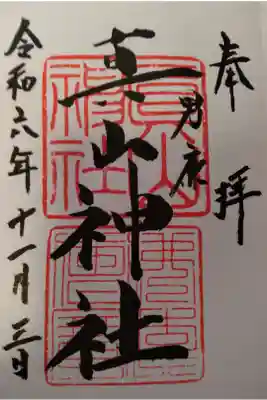 奉拝
男鹿
真山神社
令和六年十一月三日
真山
神社